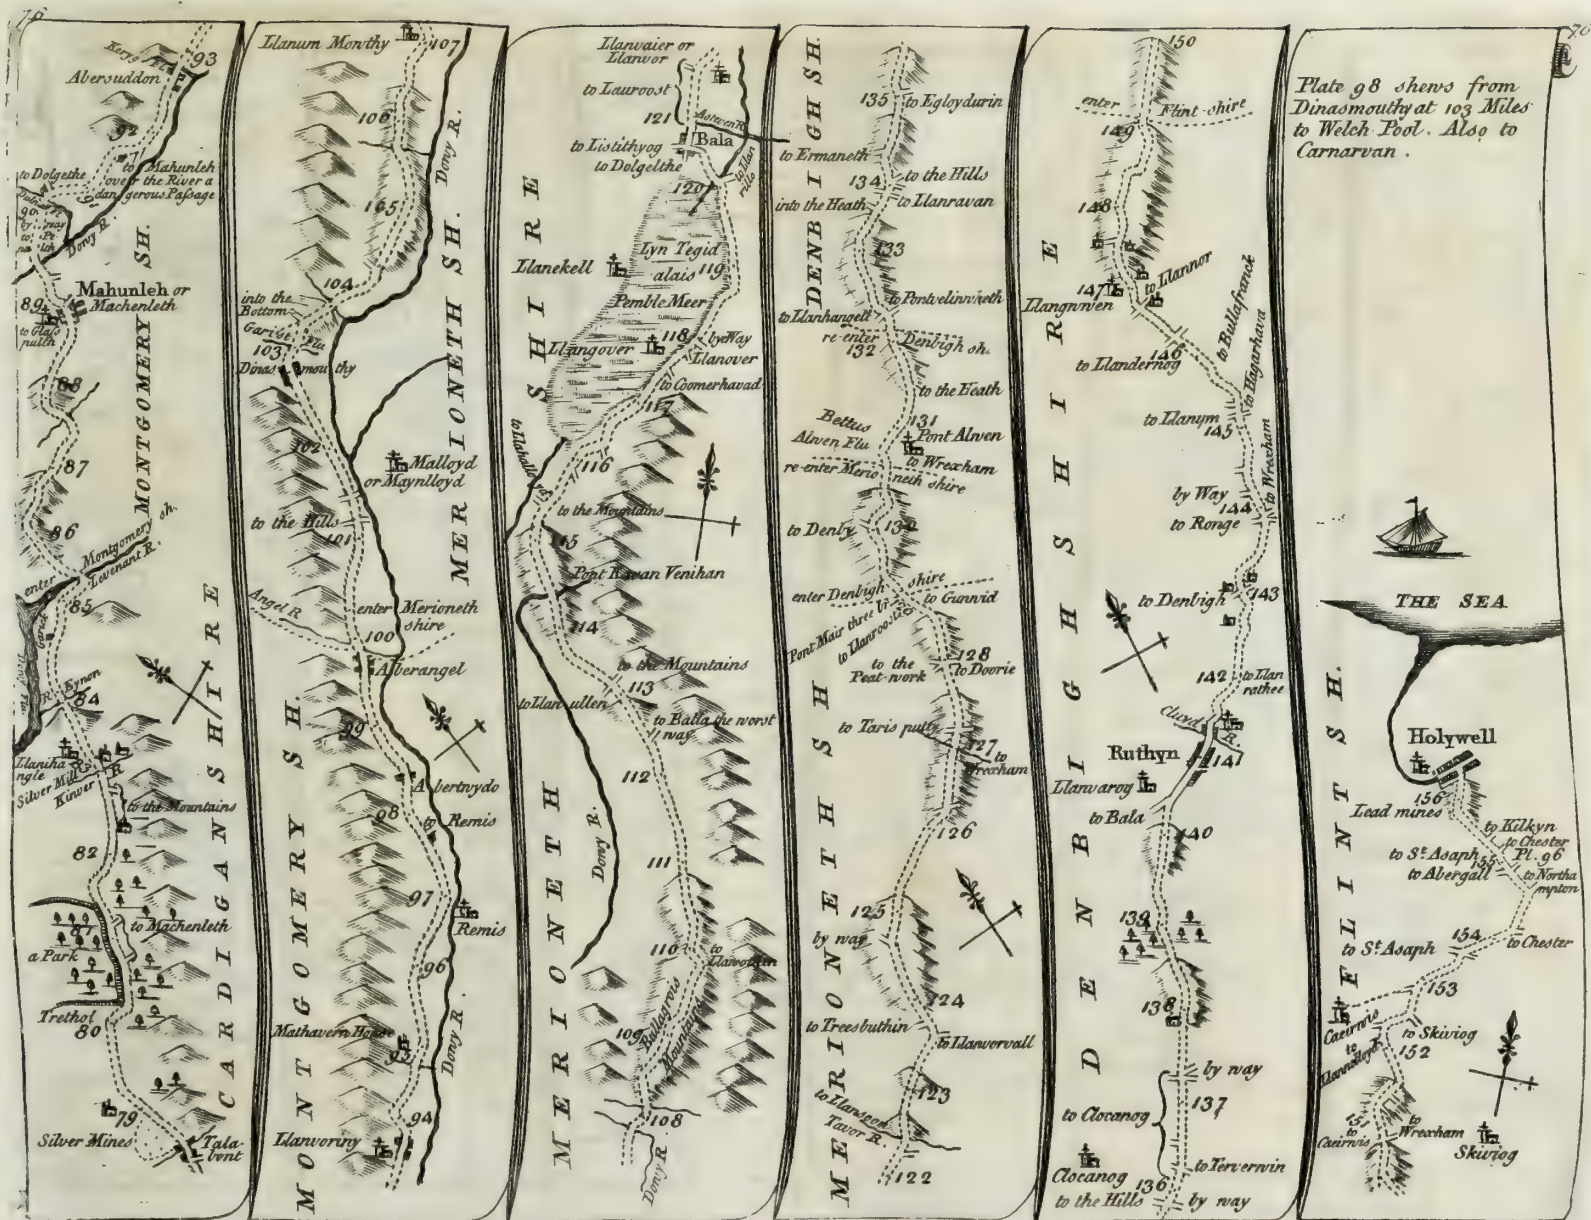 76
Kerygg Flu
93
Abersuddon
92
to Dolgethe
to Mahunleh
over the River a
dangerous Passage
91
90
by way
to Pe
Dovy R.
Mahunleh or
Machenleth
89
to Glass
pulth
88
87
86
enter
Montgomery sh.
Levenant R.
85
Garick
Eynon
R.
84
Llaniha
ngle
Silver Mill
R.
Kinver
to the Mountains
82
81
to Machenleth
a Park
Trethol
80
79
Silver Mines
Tala-
bent
MONTGOMERY SH.
CARDIGANSHIRE
Llanum Mowthy
107
106
Dovy R.
105
104
into the
Bottom
Garise
Flu
103
Dinas mouthy
102
Malloyd
or Maynlloyd
to the Hills
101
Angel R.
enter Merioneth
shire
100
Alberangel
99
Abertwydo
98
to Remis
97
Remis
96
Mathavern House
95
Dovy R.
94
Llanworiny
MERIONETH SH.
MONTGOMERY SH.
Llanvaier or
Llanvor
to Lauroost
121
Asteven R.
to Listithyog
Bala
to Dolgelthe
to Llan
rillo
120
Lyn Tegid
Llanekell
alais
119
Pemble Meer
118
by Way
Llangover
Llanover
to Coomerhavad
117
to Llahallo
116
to the Mountains
115
Pont Kwan Venihan
114
to the Mountains
113
to Llan ullen
to Balla the worst
way
112
Dovy R.
111
110
to
109
Bullogrois
Mountains
108
Dovy R.
MERIONETH SHIRE
135
to Egloydurin
to Ermaneth
134
to the Hills
into the Heath
to Llanravan
133
to Pontvelinwrieth
to Llanhangell
re-enter
Denbigh sh.
132
to the Heath
131
Bettus
Alwen Flu
Pont Alwen
to Wrexham
re-enter Merio
neth shire
130
to Denby
enter Denbigh
shire
to Gunnid
Pont Mair three
to Llanroost
128
to the
Peat-work
to Doorie
to Taris putty
127
to
Wrexham
126
125
by way
124
to Treesbuthin
to Llanvorvall
123
to Llansoon
Tavor R.
122
DENBIGH SH.
MERIONETH SH
150
enter
Flint-shire
149
148
to Llannor
147
Llangnwen
146
to Bullafranck
to Llandernog
to Hagarhava
to Llanym
145
to Wrexham
by Way
144
to Ronge
143
to Denbigh
142
to Llan
rathee
Cluyd
R.
Ruthyn
141
Llanvarog
to Bala
140
139
138
by way
137
to Clocanog
Clocanog
to Terverwin
136
to the Hills
by way
DENBIGHSHIRE
76
Plate 98 shews from
Dinasmouthy at 103 Miles
to Welch Pool. Also to
Carnarvan.
THE SEA
Holywell
156
Lead mines
to Kilkyn
to Chester
Pl. 96
to St. Asaph
155
to Abergall
to Northa
mpton
154
to St. Asaph
to Chester
153
Caeirwis
to
to Skiviog
152
151
to
Caeirwis
to
Wrexham
Skiviog
FLINTSH.